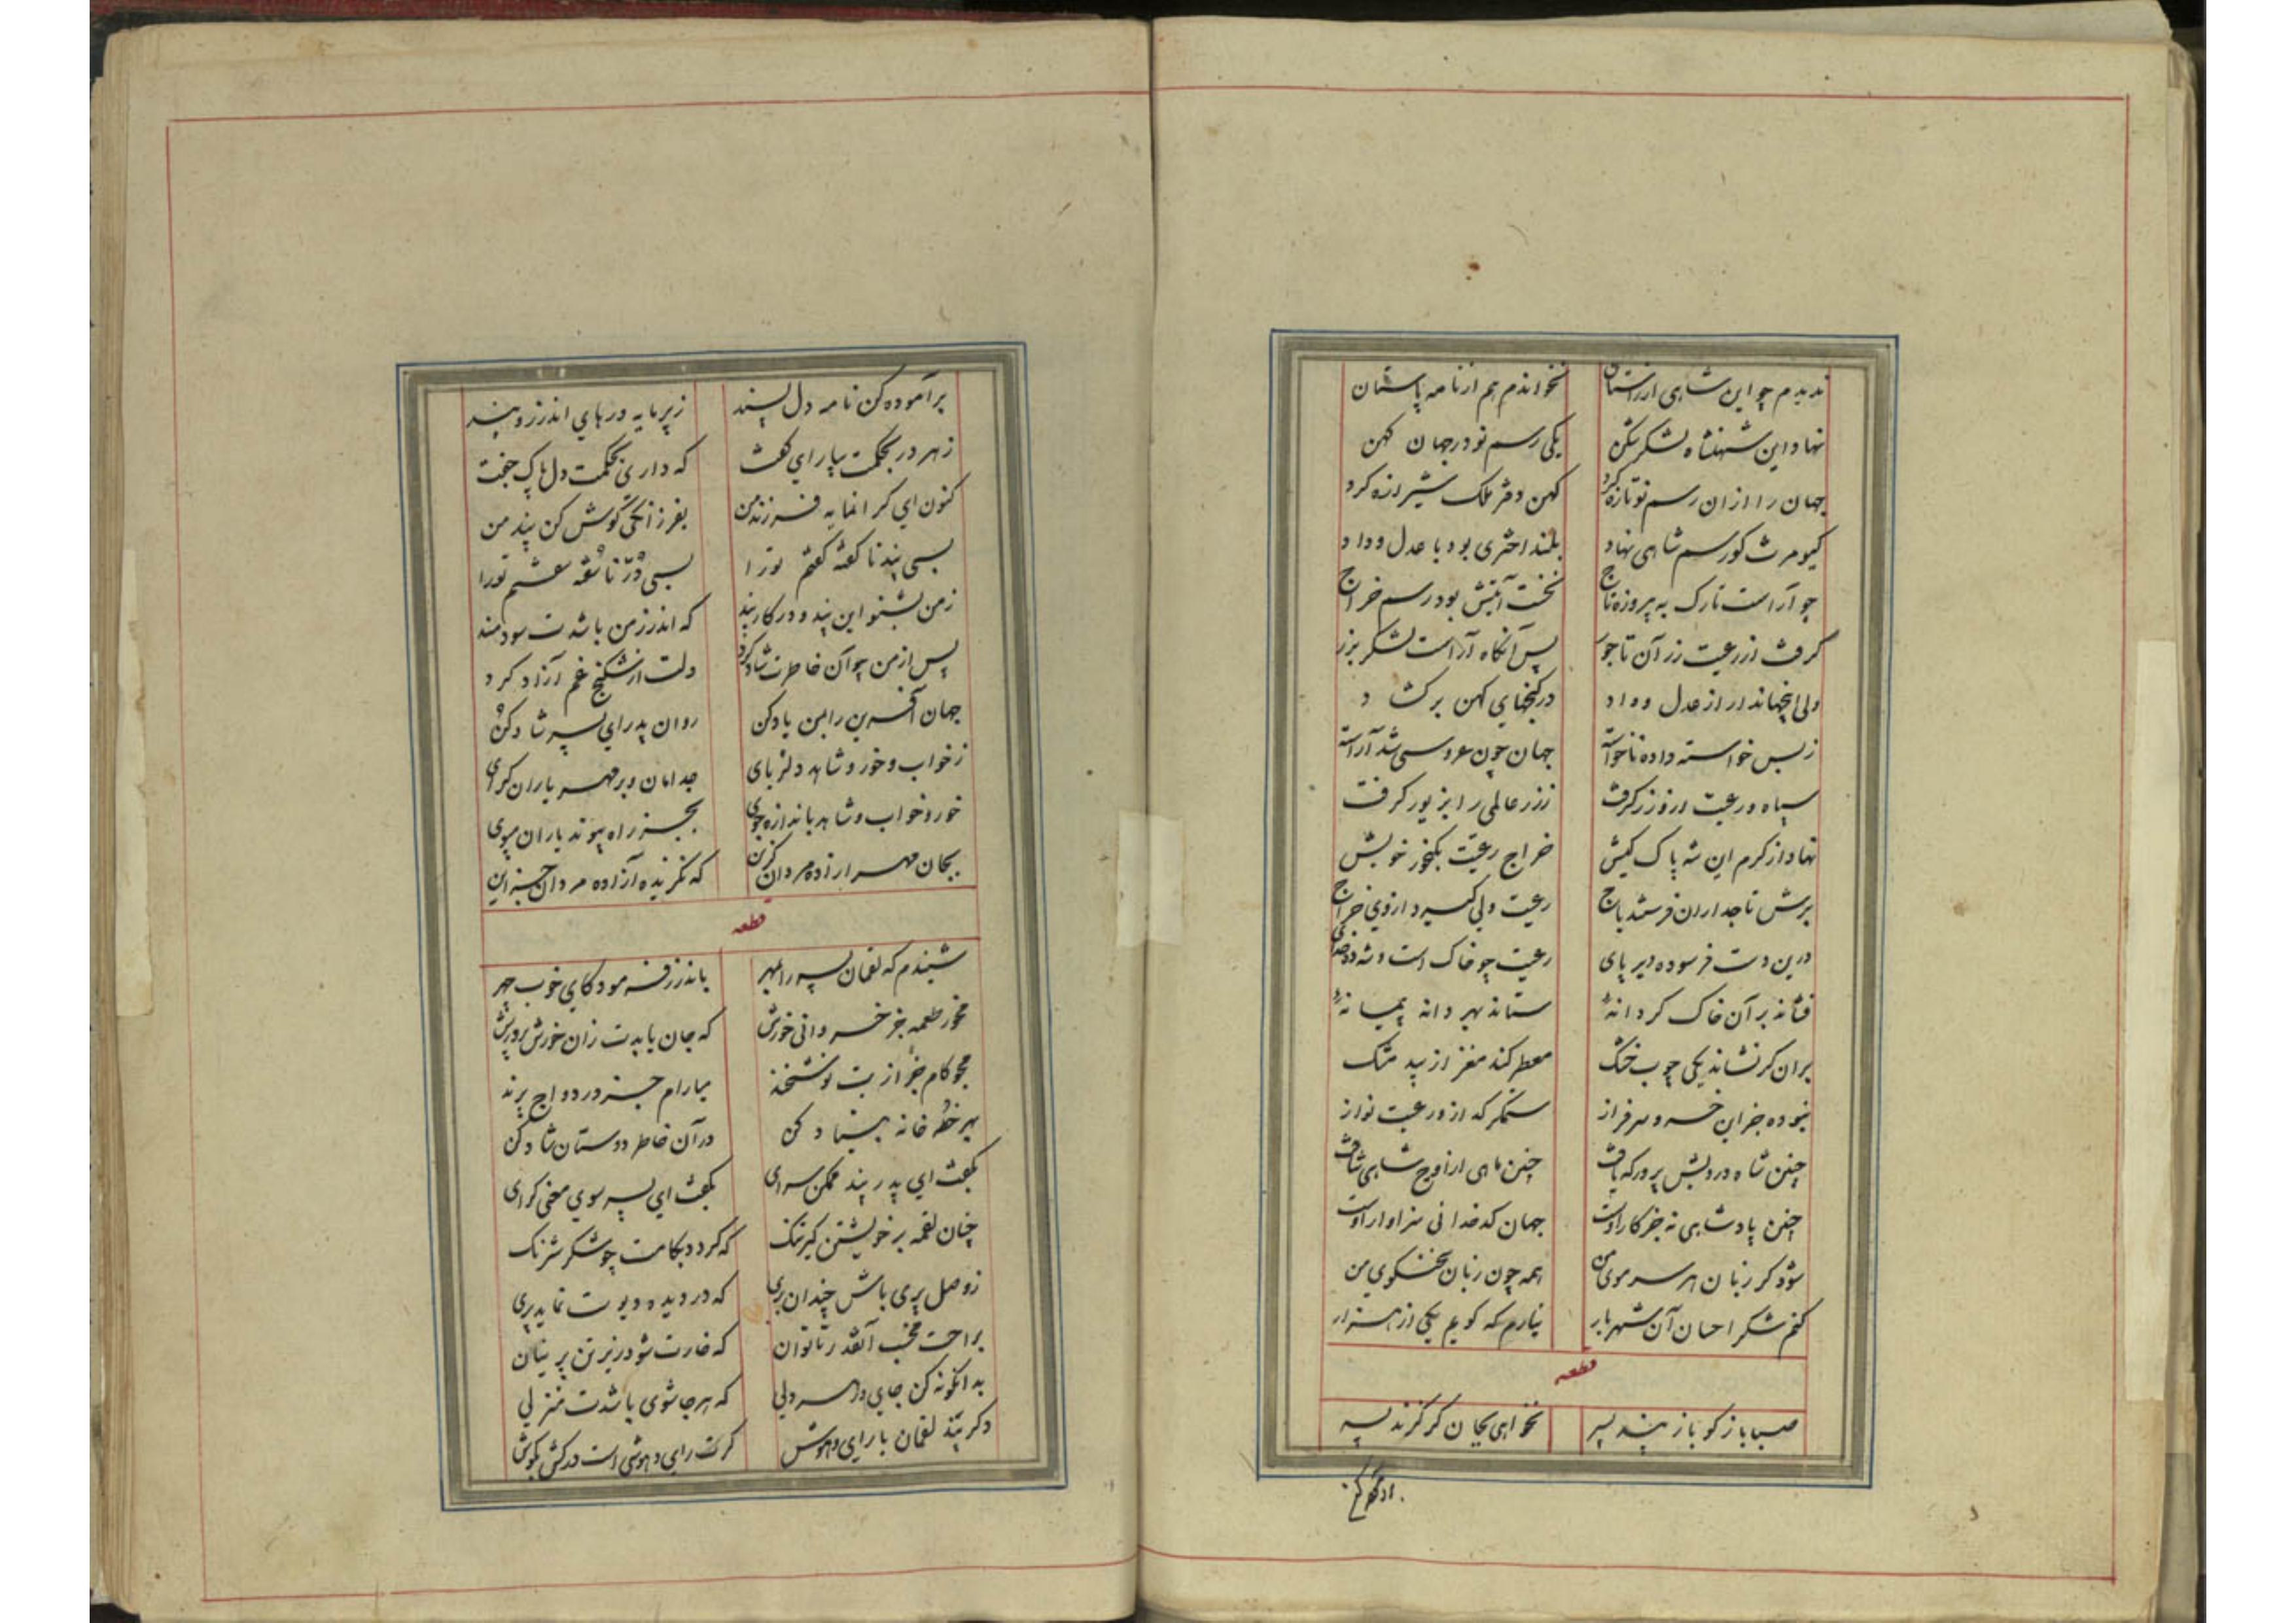 ندیدم چو این شاهی از راستان نخواندم هم از نامه پاستان
نهاد این شهنشاه لشکر شکن یکی رسم نو در جهان کهن
جهان را از ان رسم نو تازه کرد کهن دفتر ملک شیرازه کرد
کیومرث کو رسم شاهی نهاد بلند اختری بود با عدل و داد
چو آراست تارک به پیروزه تاج نخست آئینش بود رسم خراج
گرفت از رعیت زر آن تاجور پس آنگاه آراست لشکر بزر
ولی اینجهاندار از عدل و داد در گنجهای کهن بر گشاد
ز بس خواسته داده ناخواسته جهان چون عروسی شد آراسته
سپاه و رعیت ازو زر گرفت ز زر عالمی را بزیور گرفت
نهاد از کرم این شه پاک کیش خراج رعیت بگنجور خویش
برش تاجداران فرستند باج رعیت ولی گیرد از وی خراج
درین دشت فرسوده دیر پای رعیت چو خاک است و شه
فشاند بر آن خاک گر دانهٔ ستاند بهر دانه پیمانهٔ
بران گر نشاند یکی چوب خشک معطر کند مغز از بید مشک
نبوده جز این خسرو سرفراز ستمگر گداز و رعیت نواز
چنین شاه درویش پرور که یافت چنین ماهی از اوج شاهی شتافت
چنین پادشاهی نه جز کار اوست جهان کدخدائی سزاوار اوست
شود گر زبان هر سر موی من همه چون زبان سخنگوی من
کنم شکر احسان آن شهریار نیارم که گویم یکی از هزار
قطعه
صبا باز گو باز پند پسر نخواهی بجان گر گزند پسر
برآموده کن نامه دل پسند ز پرمایه درهای اندرز و پند
ز هر در بحکمت بیارای گفت که داری بحکمت دل پاک جفت
کنون ای گرانمایه فرزند من بفرزانگی گوش کن پند من
بسی پند ناگفته گفتم تورا بسی دُرّ ناسُفته سفتم تورا
ز من بشنو این پند و در کار بند که اندرز من باشدت سودمند
پس از من چو آن خاطرت شاد کرد دلت از شکنج غم آزاد کرد
جهان آفرین را بمن یاد کن روان پدر ای پسر شاد کن
ز خواب و خور و شاهد دلربای جدا مان و بر مهر یاران گرای
خور و خواب و شاهد باندازه جوی بجز راه پیوند یاران مپوی
بجان مهر ازاده مردان گزین که نگزیده آزاده مردان جز این
قطعه
شنیدم که لقمان پسر را بمهر باندرز فرمود کای خوب چهر
مخور طعمه جز خسروانی خورش که جان یابدت زان خورش پرورش
مجو کام جز از بت نوشخند میارام جز در دواج پرند
بهر خطه خانه بنیاد کن در آن خاطر دوستان شاد کن
بگفت ای پدر پند ممکن سرای بگفت ای پسر سوی معنی گرای
چنان لقمه بر خویشتن گیر تنگ که گردد بکامت چو شکر شرنگ
ز وصل پری باش چندان بری که در دیده دیوت نماید پری
براحت مخسب آنقدر تا توان که خارت شود زیر تن پرنیان
بدانگونه کن جای در هر دلی که هر جا شوی باشدت منزلی
دگر پند لقمان با رای و هوش گرت رای و هوشی است درکش بگوش